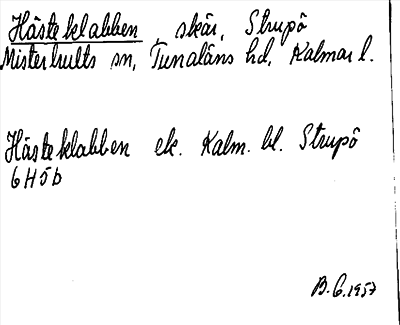 Hästeklabben, skär, Strupö
Misterhults sn, Tunaläns hd, Kalmar l.
Hästeklabben ek. Kalm. bl. Strupö
6H5b
B.G. 1957